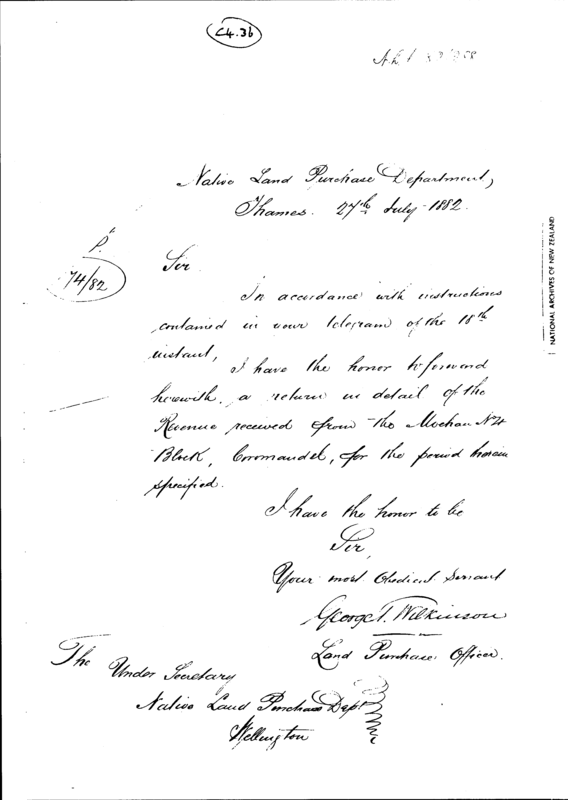 C4.36
Native Land Purchase Department,
Thames. 27th July 1882.
P.
74/82
Sir
In accordance with instructions
contained in your telegram of the 18th
instant, I have the honor to forward
herewith, a return in detail of the
Revenue received from the Moehau No 4
Block, Coromandel, for the period herein
specified.
I have the honor to be
Sir,
Your most Obedient Servant
George T. Wilkinson
Land Purchase Officer.
The Under Secretary
Native Land Purchase Dept
Wellington
NATIONAL ARCHIVES OF NEW ZEALAND